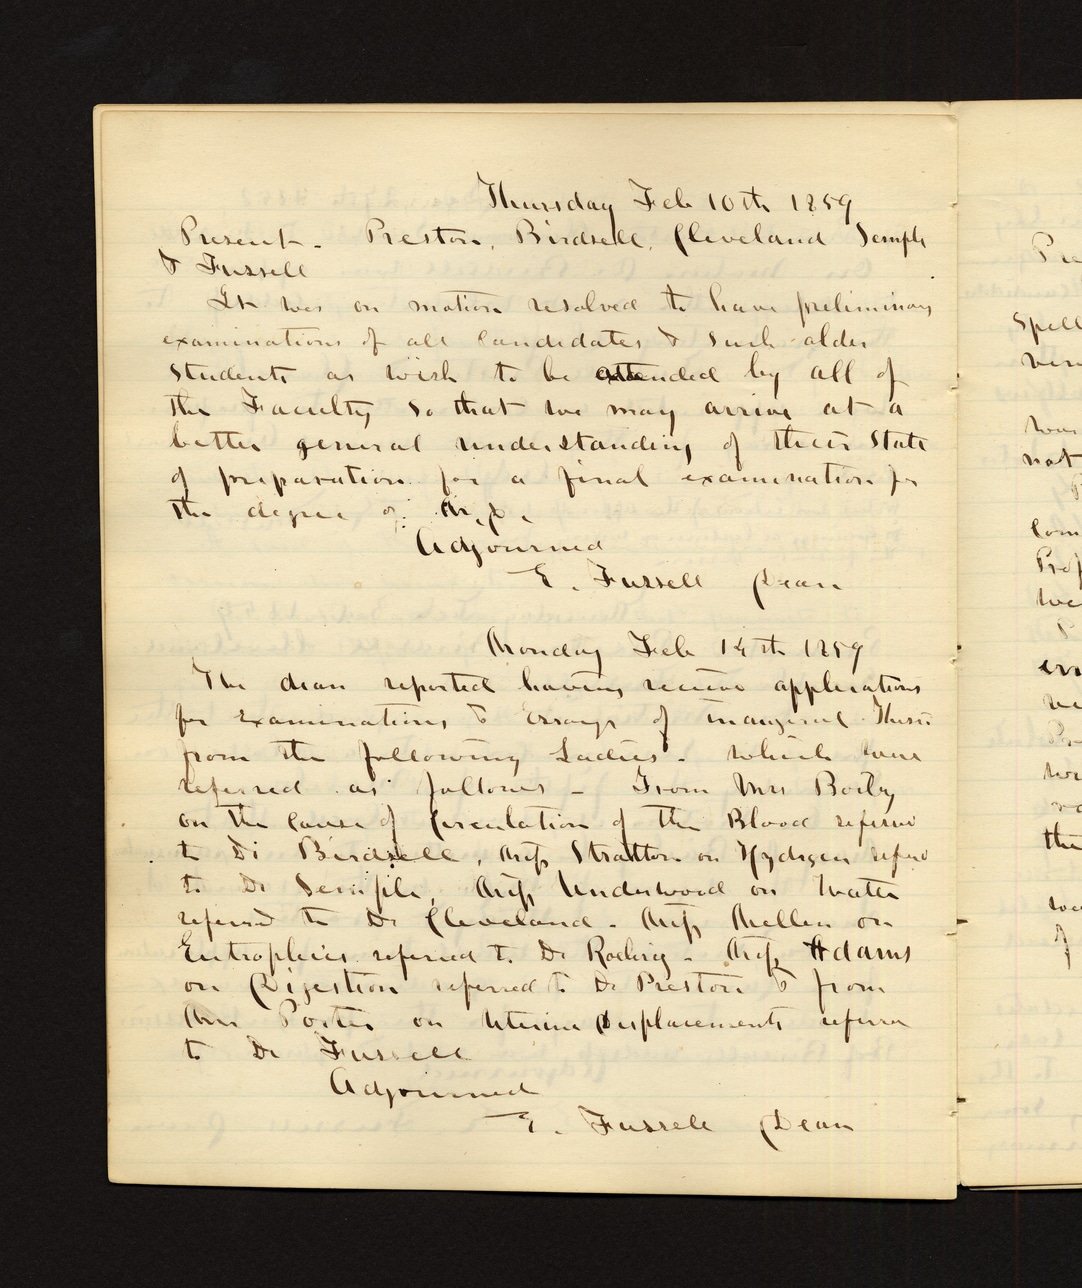 Thursday Feb 10th 1859
Present - Preston, Birdsell, Cleveland Semple
& Fussell
It was on motion resolved to have preliminary
examinations of all Candidates & Such older
Students as wish to be attended by all of
the Faculty so that we may arrive at a
better general understanding of their State
of preparation for a final examination for
the degree of M.D.
Adjourned
E. Fussell Dean
Monday Feb 14th 1859
The dean reported having receive applications
for examinations & Essays of inaugural Thesis
from the following Ladies - which were
referred as follows - From Mrs
on the Cause of Circulation of the Blood referred
to Dr Birdsell, Miss Stratton on Hydrgen referred
to Dr Semple, Miss Underwood on Water
referred to Dr Cleveland. Miss Mellen on
referred to Dr - Miss Adams
on Digestion referred to Dr Preston & from
Mrs Porter on Uterine Displacements referred
to Dr Fussell
Adjourned
E. Fussell Dean
Pre
Spell
wer
not
Com
Prof
we
the